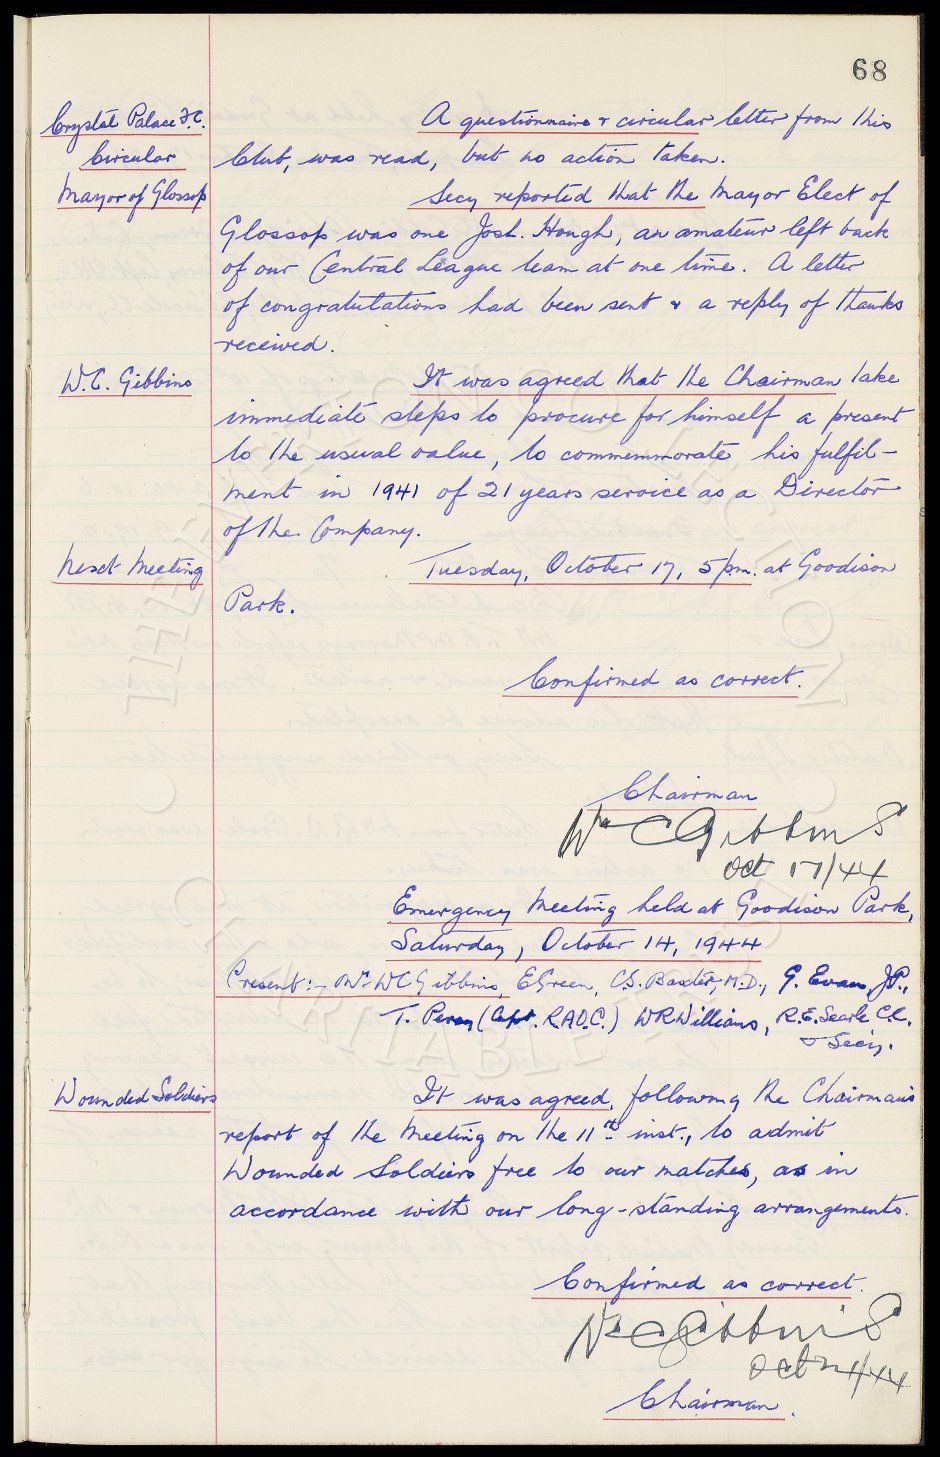 68
Crystal Palace F.C.
Circular
A questionnaire & circular letter from this
Club, was read, but no action taken.
Mayor of Glossop
Secy reported that the Mayor Elect of
Glossop was one Josh. Hough, an amateur left back
of our Central League team at one time. A letter
of congratulations had been sent & a reply of thanks
received.
W.C. Gibbins
It was agreed that the Chairman take
immediate steps to procure for himself a present
to the usual value, to commemmorate his fulfil-
ment in 1941 of 21 years service as a Director
of the Company.
Next Meeting
Tuesday, October 17, 5 p.m. at Goodison
Park.
Confirmed as correct.
Chairman
Wm C Gibbins
Oct 17/44
Emergency Meeting held at Goodison Park,
Saturday, October 14, 1944
Present:- Mr. W C Gibbins, E Green, C.S. Baxter, M.D., G. Evans, J.P.,
T. Percy (Capt. R.A.O.C.) W R Williams, R.E. Searle C.C.
& Secy.
Wounded Soldiers
It was agreed, following the Chairman's
report of the Meeting on the 11th inst., to admit
Wounded Soldiers free to our matches, as in
accordance with our long-standing arrangements.
Confirmed as correct.
Wm C Gibbins
Chairman.
THE EVERTON COLLECTION
CHARITABLE TRUST